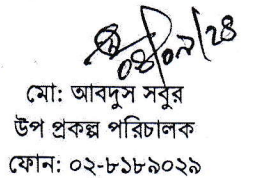 ০৪/০৯/২৪
মো: আবদুস সবুর
উপ প্রকল্প পরিচালক
ফোন: ০২-৮১৮৯০২৯